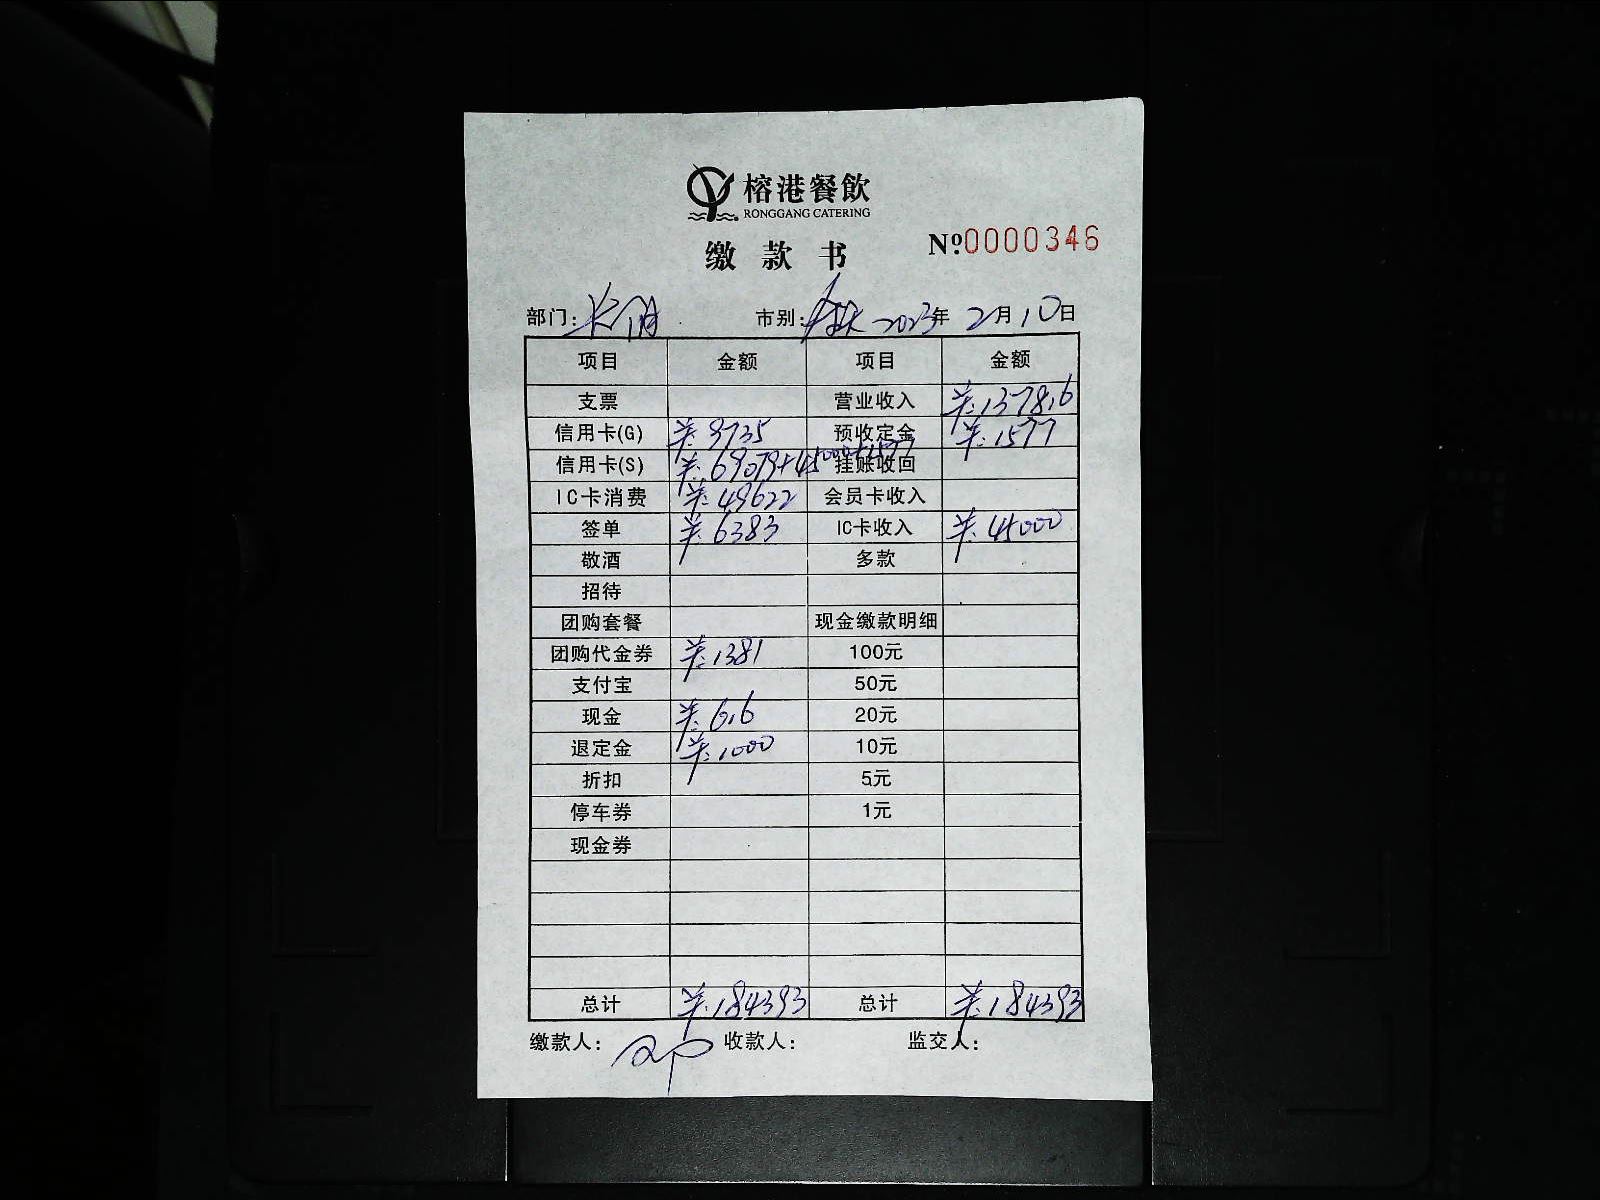 榕港餐飲
RONGGANG CATERING
缴款书
№0000346
部门: 市别: 2023年 2月10日
项目 金额 项目 金额
支票 营业收入
信用卡(G) 羊: 9735 预收定金 羊: 1577
信用卡(S) 羊: 69079+45000+1577 挂账收回
IC卡消费 羊: 49622 会员卡收入
签单 羊: 6383 IC卡收入 羊: 45000
敬酒 多款
招待
团购套餐 现金缴款明细
团购代金券 羊: 1381 100元
支付宝 50元
现金 羊: 6.6 20元
退定金 羊: 1000 10元
折扣 5元
停车券 1元
现金券
总计 羊: 184393 总计 羊: 184393
缴款人: 收款人: 监交人: